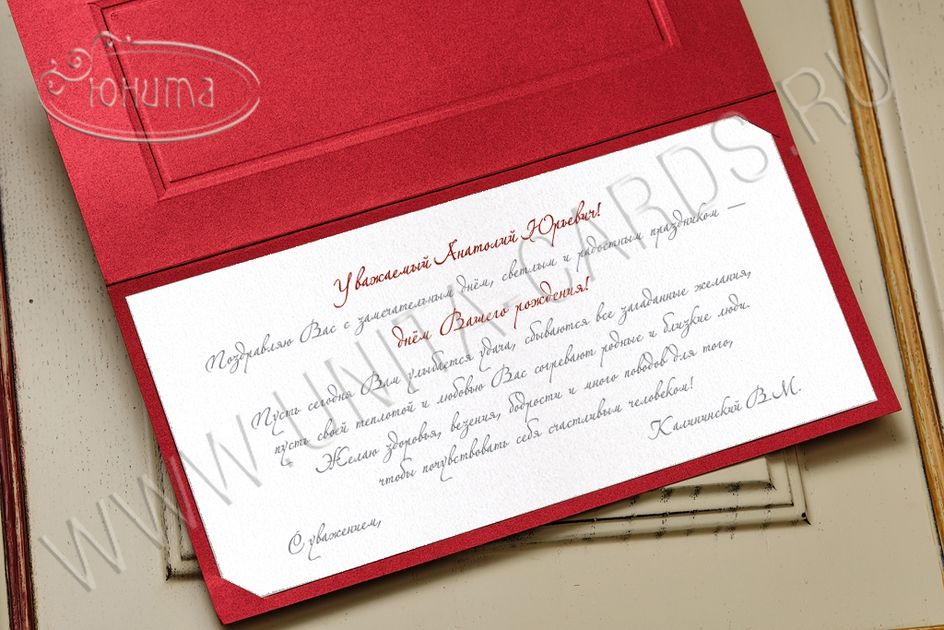 Юнита
Уважаемый Анатолий Юрьевич!
Поздравляю Вас с замечательным днём, светлым и радостным праздником —
днём Вашего рождения!
Пусть сегодня Вам улыбается удача, сбываются все загаданные желания,
пусть своей теплотой и любовью Вас согревают родные и близкие люди.
Желаю здоровья, везения, бодрости и много поводов для того,
чтобы почувствовать себя счастливым человеком!
С уважением,
Калининский В.М.
WWW.UNITA-CARDS.RU